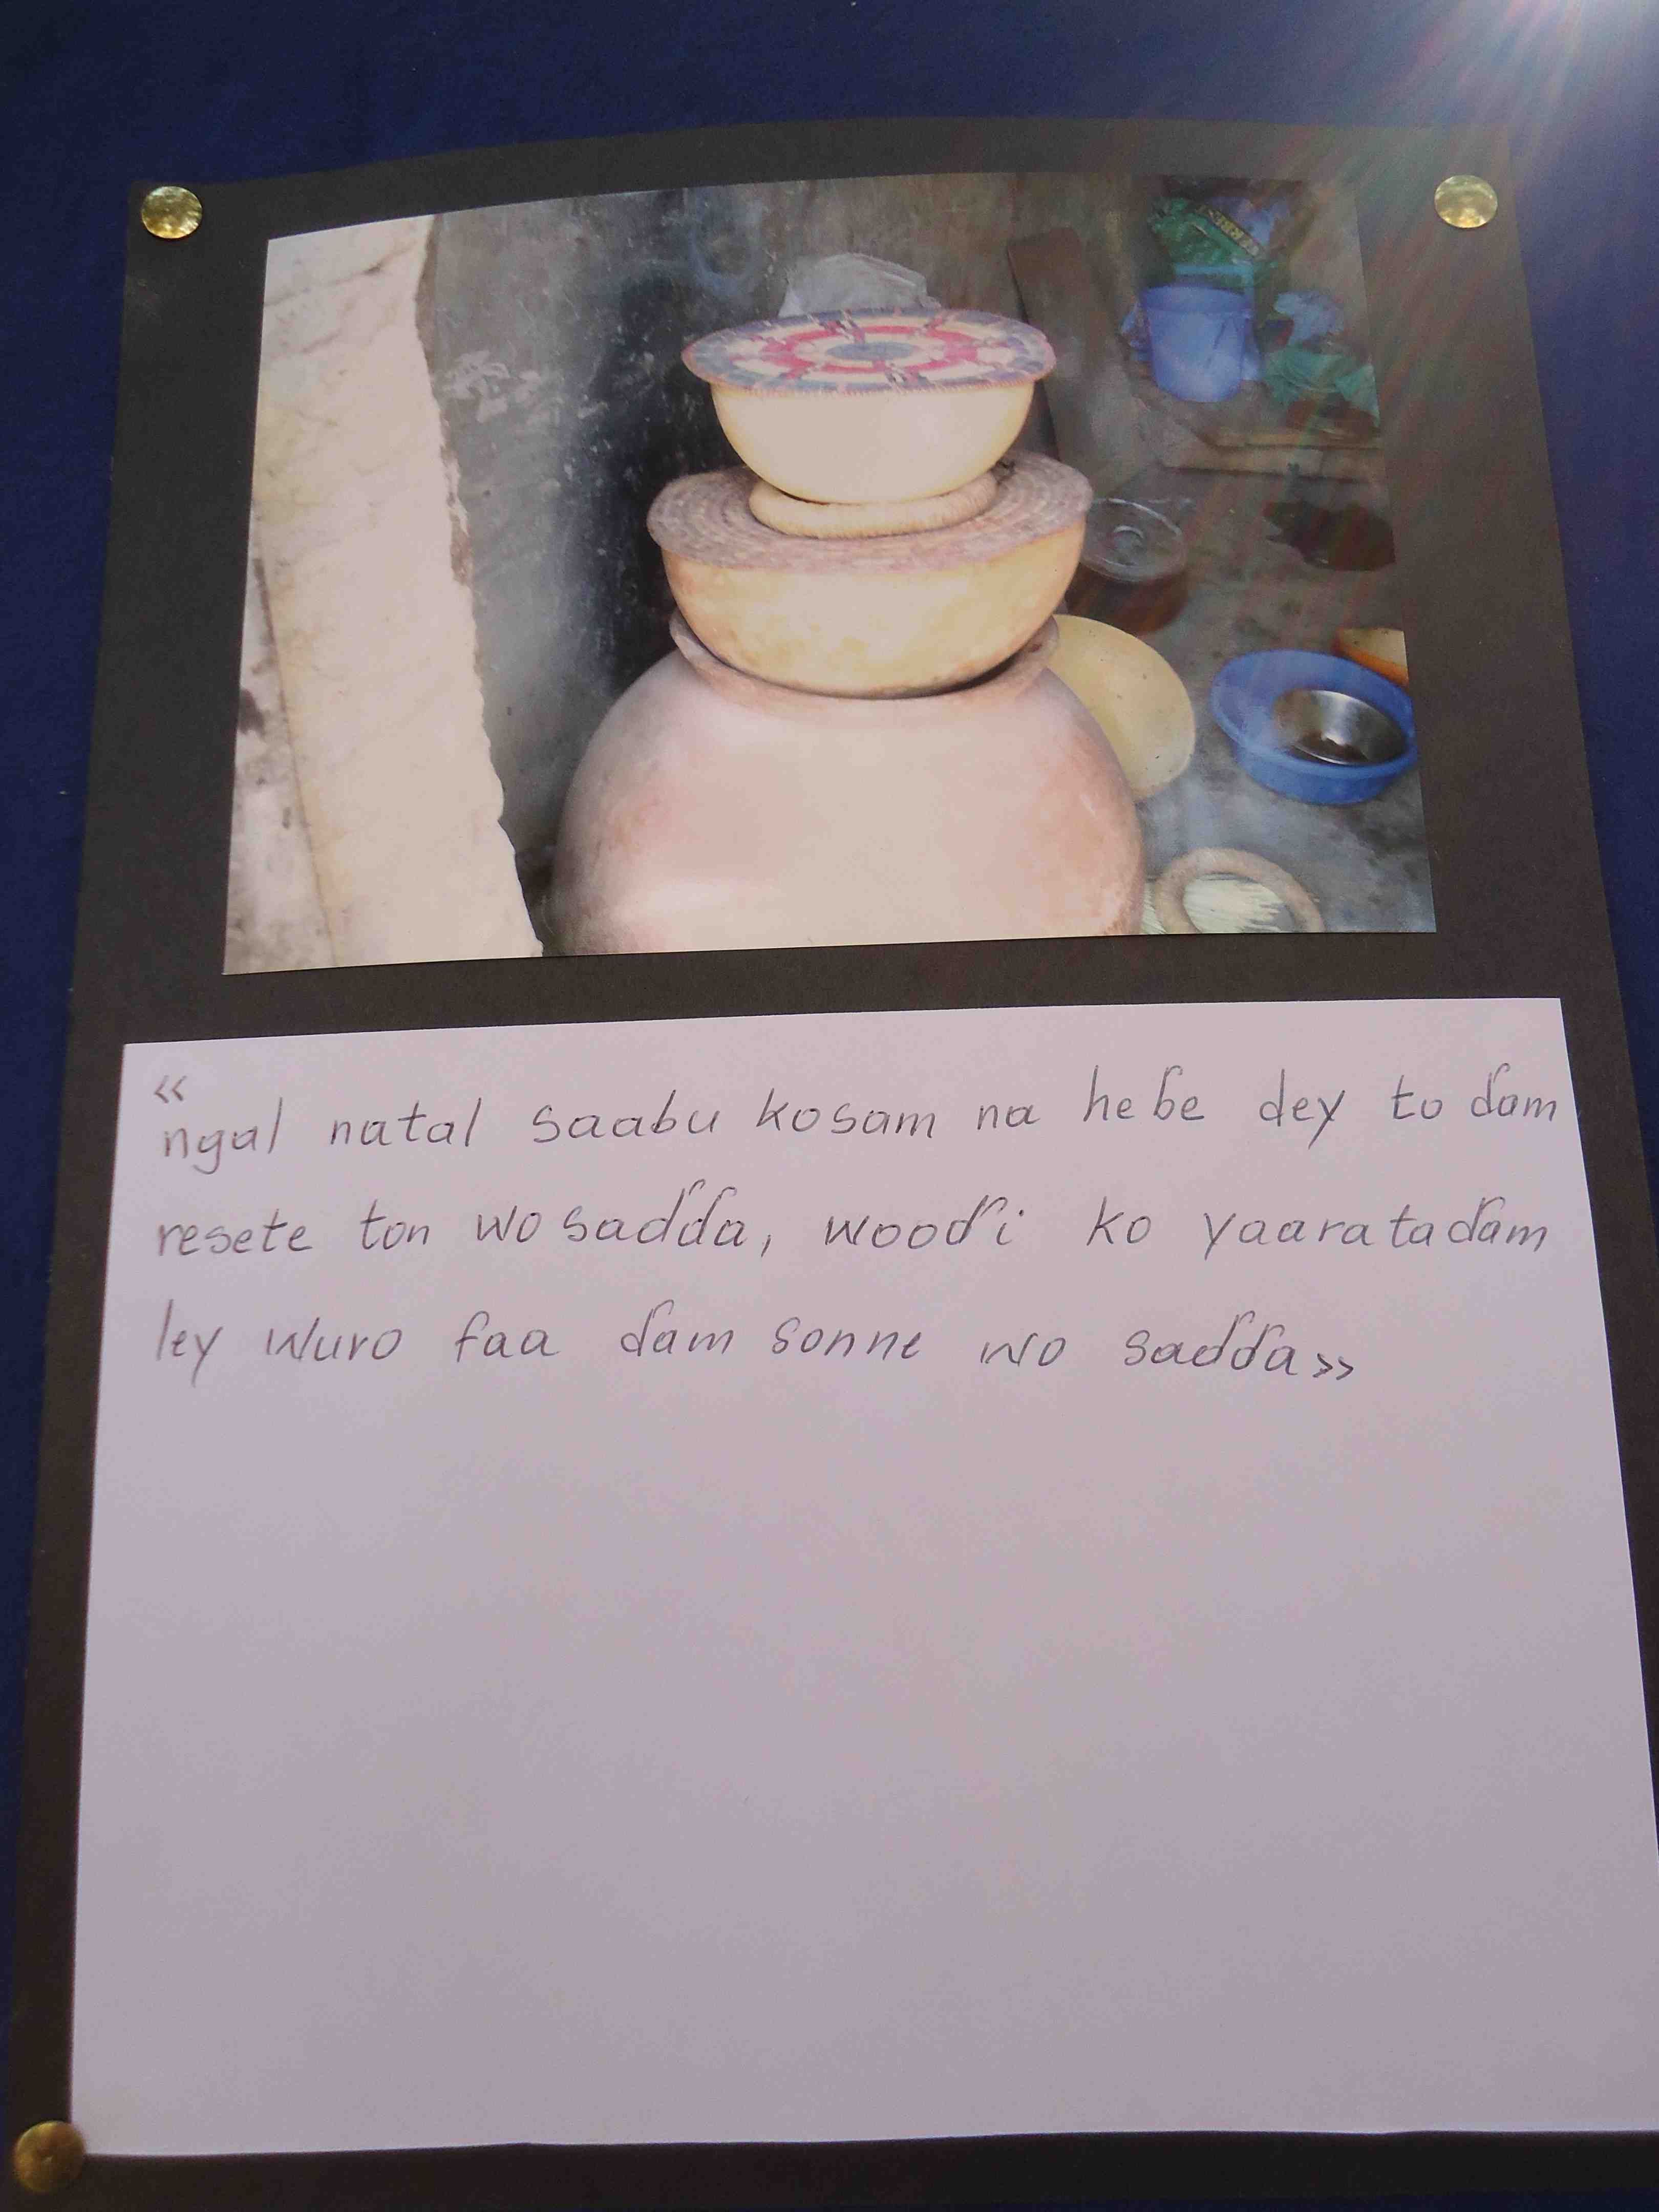 «
ngal natal saabu kosam na heɓe dey to ɗam
resete ton wo saɗɗa, wooɗi ko yaarata ɗam
ley wuro faa ɗam sonne wo saɗɗa»